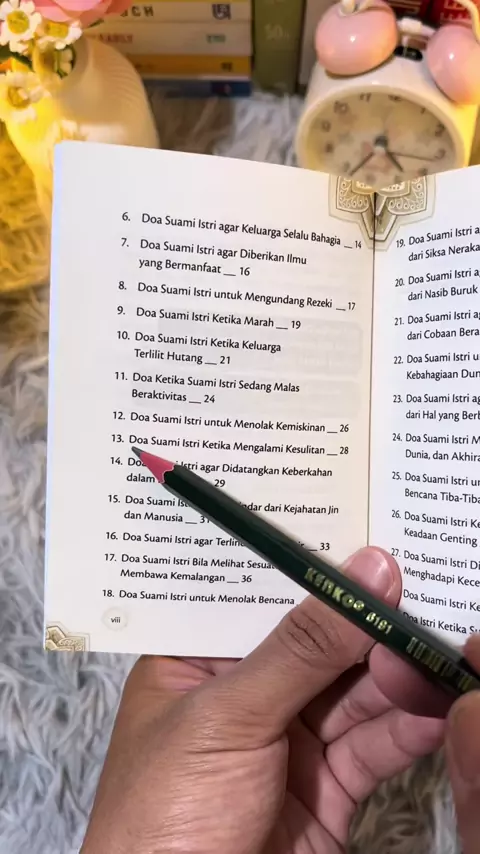 6. Doa Suami Istri agar Keluarga Selalu Bahagia __ 14
7. Doa Suami Istri agar Diberikan Ilmu
yang Bermanfaat __ 16
8. Doa Suami Istri untuk Mengundang Rezeki __ 17
9. Doa Suami Istri Ketika Marah __ 19
10. Doa Suami Istri Ketika Keluarga
Terlilit Hutang __ 21
11. Doa Ketika Suami Istri Sedang Malas
Beraktivitas __ 24
12. Doa Suami Istri untuk Menolak Kemiskinan __ 26
13. Doa Suami Istri Ketika Mengalami Kesulitan __ 28
14. Istri agar Didatangkan Keberkahan
dalam 29
15. Doa Suami dari Kejahatan Jin
dan Manusia __ 31
16. Doa Suami Istri agar __ 33
17. Doa Suami Istri Bila Melihat
Membawa Kemalangan __ 36
18. Doa Suami Istri untuk Menolak Bencana
viii
19. Doa Suami Istri
dari Siksa Neraka
20. Doa Suami Istri
dari Nasib Buruk
21. Doa Suami Istri
dari Cobaan
22. Doa Suami Istri
Kebahagiaan
23. Doa Suami Istri
dari Hal yang
24. Doa Suami Istri
Dunia, dan
25. Doa Suami Istri
Bencana
26. Doa Suami Istri
Keadaan Genting
27. Doa Suami Istri
Menghadapi
Doa Suami Istri
Istri Ketika
KENKO 6181